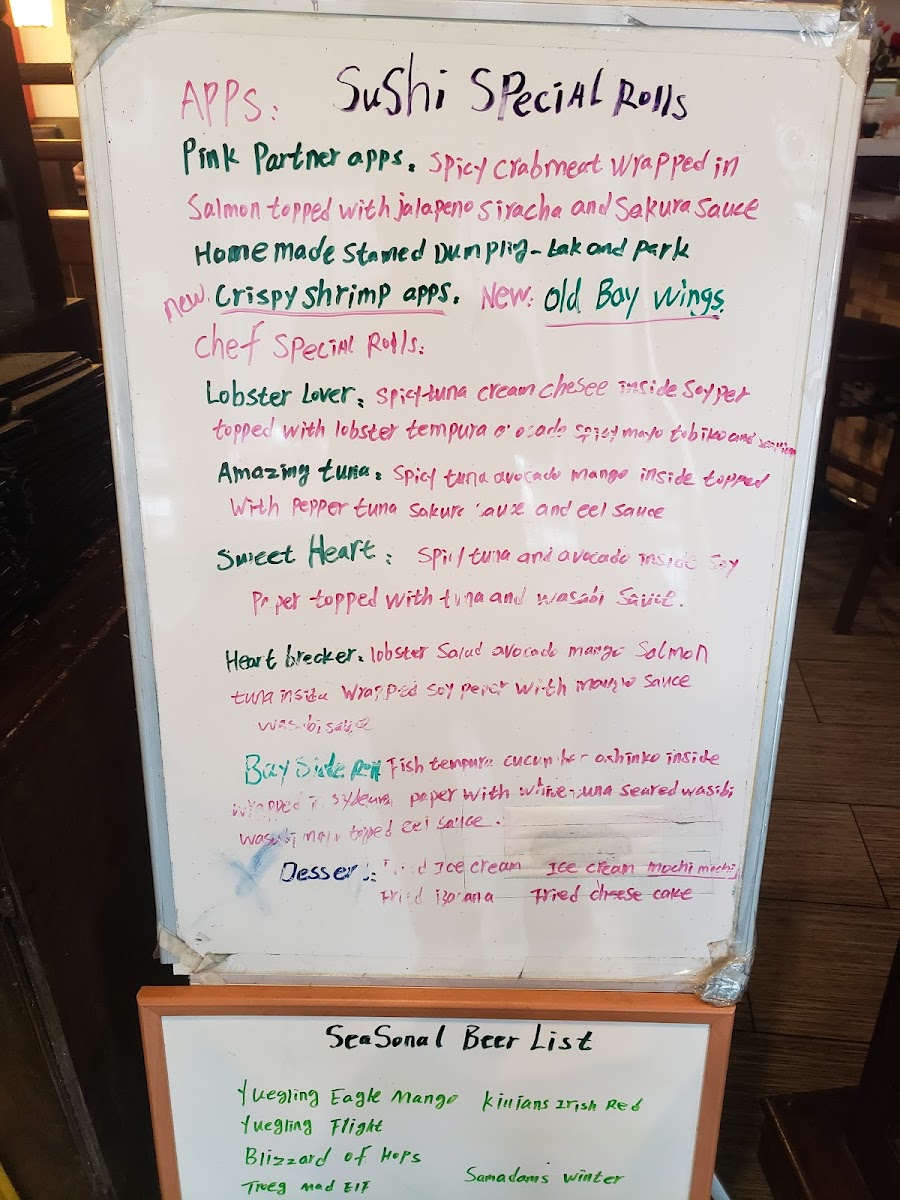 SuShi SPeciAL Rolls
APPS:
Pink Partner apps. Spicy crabmeat wrapped in
Salmon topped with jalapeno siracha and Sakura Sauce
Home made Stamed Dumplig - and
new. Crispy shrimp apps. New: old Bay wings.
chef SPeciAL Rolls:
Lobster Lover: Spicy tuna cream chesee inside Soy per
topped with lobster tempura spicy mayo tobiko and
Amazing tuna: Spicy tuna avocado mango inside topped
With Pepper tuna sakura and eel sauce
Sweet Heart: Spicy tuna and avocado inside Soy
topped with tuna and wasabi Sauce.
Heart brecker. lobster Salad avocado mango Salmon
tuna wrapped soy with sauce
wasabi sauce
Bay Side Roll Fish tempura oshinko inside
wrapped paper with seared wasibi
topped eel sauce.
Ice cream Ice cream mochi mochi
Fried Fried cheese cake
SeaSonal Beer List
Yuegling Eagle Mango Killians Irish Red
Yuegling Flight
Blizzard of Hops
Troeg mad Elf Samadams winter